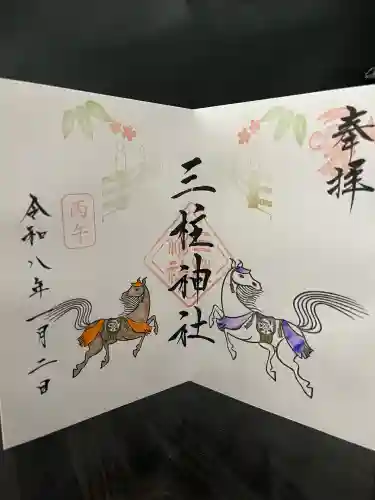 奉拝
三柱神社
丙午
令和八年一月二日